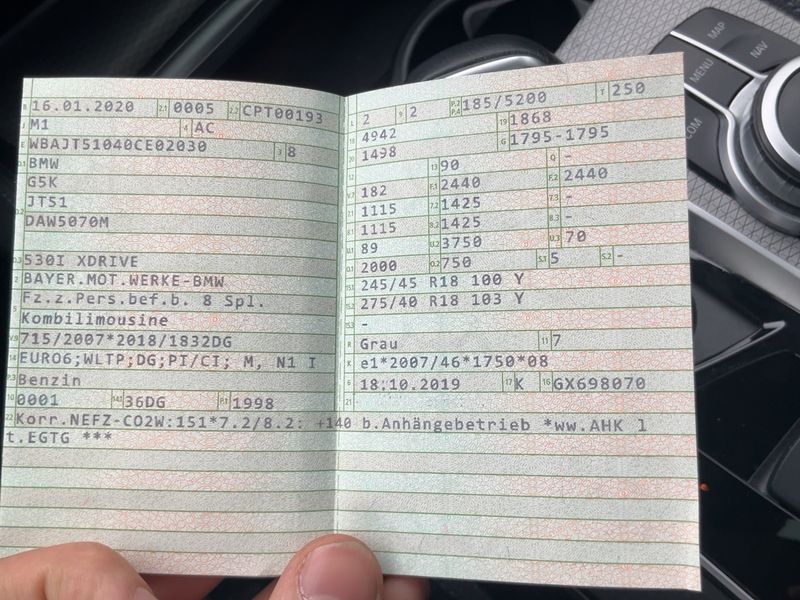 B 16.01.2020 2.1 0005 2.2 CPT00193
J M1 4 AC
E WBAJT51040CE02030 3 8
D.1 BMW
G5K
D.2 JT51
DAW5070M
D.3 530I XDRIVE
2 BAYER.MOT.WERKE-BMW
5 Fz.z.Pers.bef.b. 8 Spl.
Kombilimousine
V.9 715/2007*2018/1832DG
14 EURO6;WLTP;DG;PI/CI; M, N1 I
P.3 Benzin
10 0001 14.1 36DG P.1 1998
22 Korr.NEFZ-CO2W:151*7.2/8.2: +140 b.Anhängebetrieb *ww.AHK l
t.EGTG ***
L 2 9 2 P.2 P.4 185/5200 T 250
18 4942 19 1868
20 1498 G 1795-1795
12 13 90 Q -
V.7 182 F.1 2440 F.2 2440
7.1 1115 7.2 1425 7.3 -
8.1 1115 8.2 1425 8.3 -
U.1 89 U.2 3750 U.3 70
O.1 2000 O.2 750 S.1 5 S.2 -
15.1 245/45 R18 100 Y
15.2 275/40 R18 103 Y
15.3 -
R Grau 11 7
K e1*2007/46*1750*08
6 18.10.2019 17 K 16 GX698070
21 -
MAP
NAV
MENU
COM